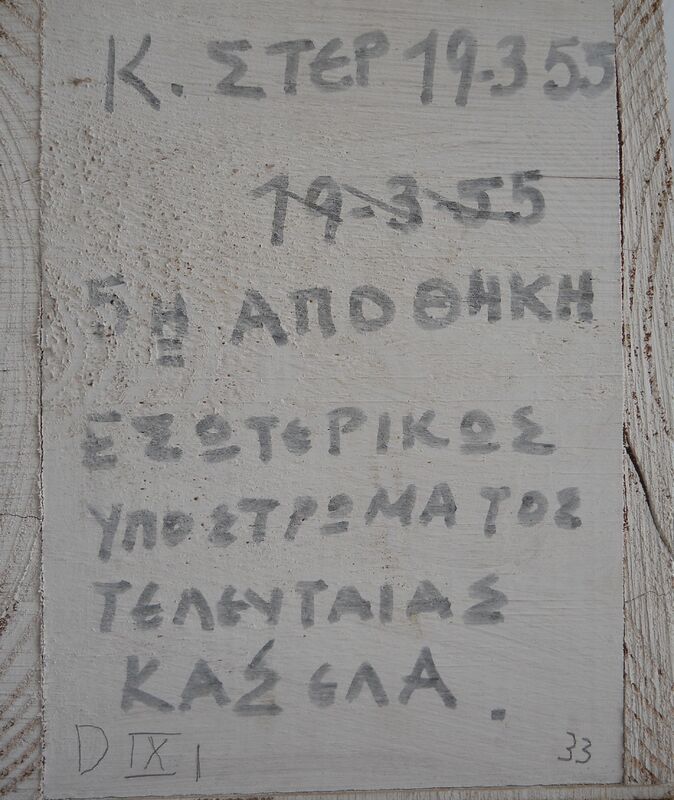 Κ. ΣΤΕΡ 19-3 55
19-3-55
5Η ΑΠΟΘΗΚΗ
ΕΣΩΤΕΡΙΚΩΣ
ΥΠΟΣΤΡΩΜΑΤΟΣ
ΤΕΛΕΥΤΑΙΑΣ
ΚΑΣΕΛΑ.
D IX 1
33